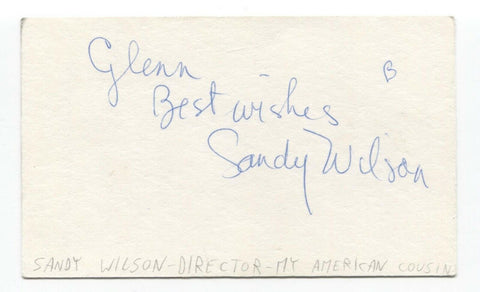 Glenn
B
Best wishes
Sandy Wilson
SANDY WILSON-DIRECTOR-MY AMERICAN COUSIN